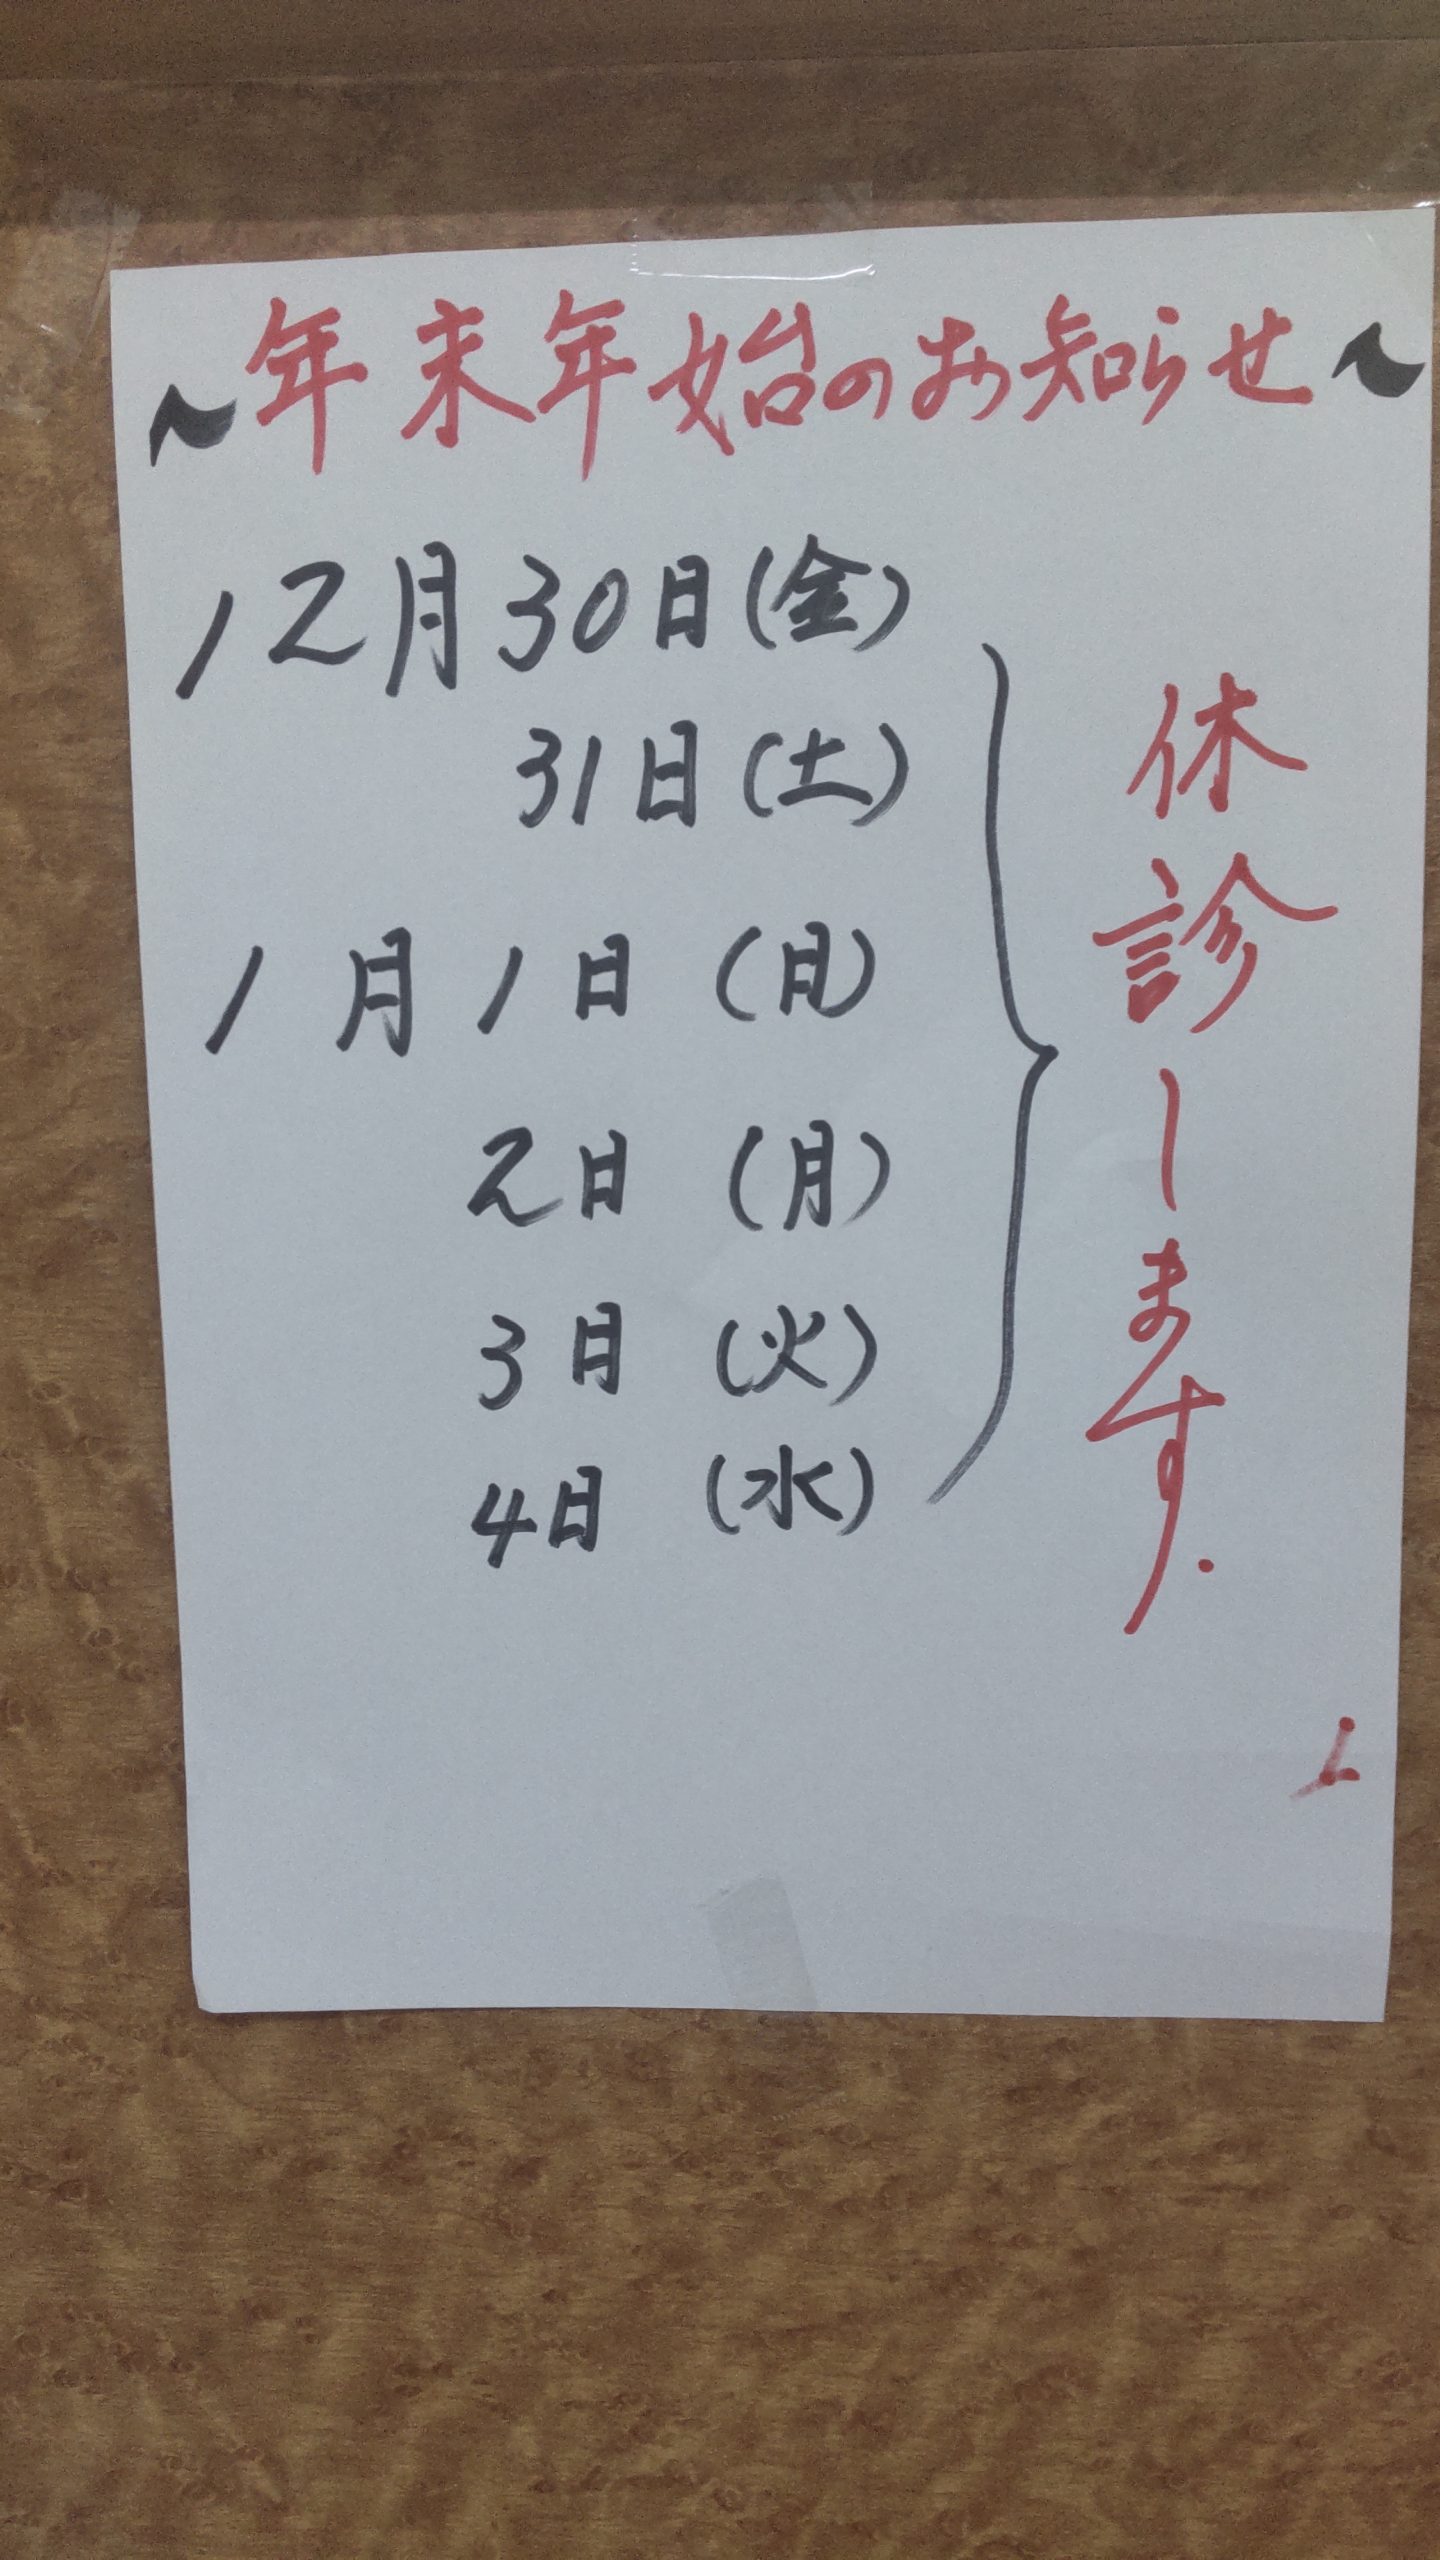 ～年末年始のお知らせ～
12月30日(金)
31日(土)
1月1日(日)
2日(月)
3日(火)
4日(水)
休診します.